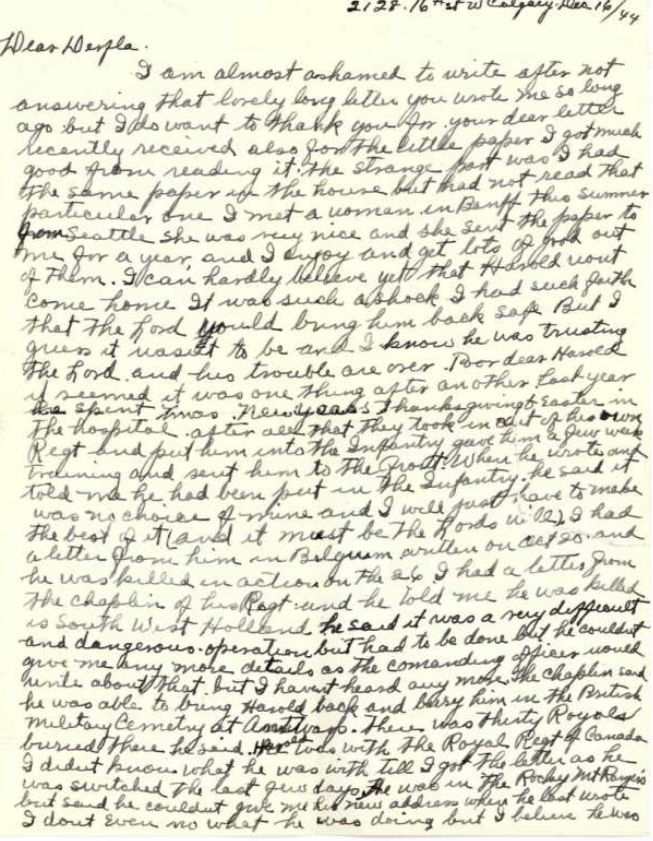 2128. 16th st W Calgary. Dec 16/44
Dear Derfla.
I am almost ashamed to write after not
answering that lovely long letter you wrote me so long
ago but I do want to thank you for your dear letter
recently received also for the little paper I got much
good from reading it. the strange part was I had
the same paper in the house but had not read that
particular one I met a woman in Banff this summer
from Seattle she was very nice and she sent the paper to
me for a year, and I enjoy and get lots of good out
of them. I can hardly believe yet that Harold wont
come home It was such a shock I had such faith
that the Lord would bring him back safe But I
guess it wasent to be and I know he was trusting
the Lord. and his trouble are over. Poor dear Harold
it seemed it was one thing after another Last year
he spent Xmas. New years Thanksgiving & Easter in
the hospital. after all that they took him out of his own
Regt and put him into the Infantry gave him a few week
training and sent him to the Front. When he wrote and
told me he had been put in the Infantry. he said it
was no choice of mine and I will just have to make
the best of it (and it must be the Lords will) I had
a letter from him in Belgium written on Oct 20. and
he was killed in action on the 26. I had a letter from
the chaplin of his Regt. and he told me he was killed
is South West Holland he said it was a very difficult
and dangerous operation but had to be done but he couldnt
give me any more details as the comanding officer would
write about that. but I havent heard any more. The chaplin said
he was able to bring Harold back and bury him in the British
Military Cemetry at Antwarp. There was thirty Royals
buried there he said. He was with the Royal Regt of Canada
I didnt know what he was with till I got this letter as he
was switched the last few days, He was in the Rocky Mt Rangers
but said he couldnt give me his new address when he last wrote
I dont even no what he was doing but I believe he was